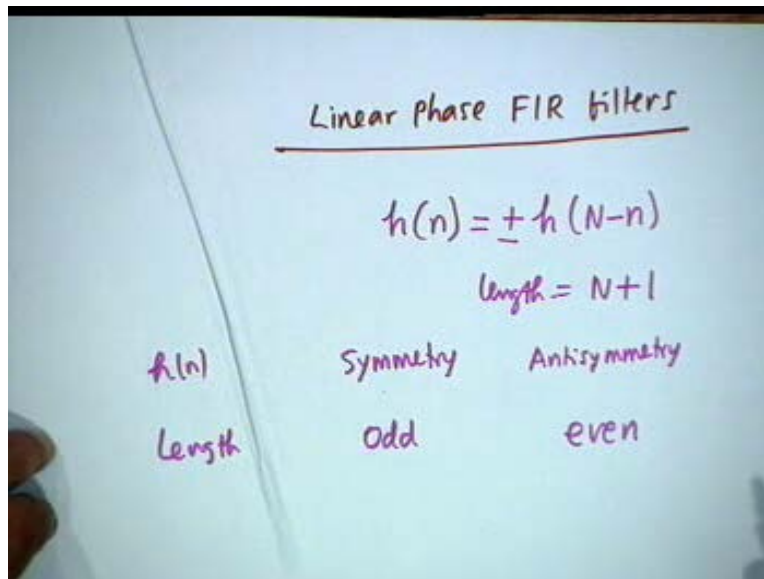 Linear Phase FIR filters
h(n) = ± h (N-n)
length = N+1
h(n) Symmetry Antisymmetry
Length Odd even